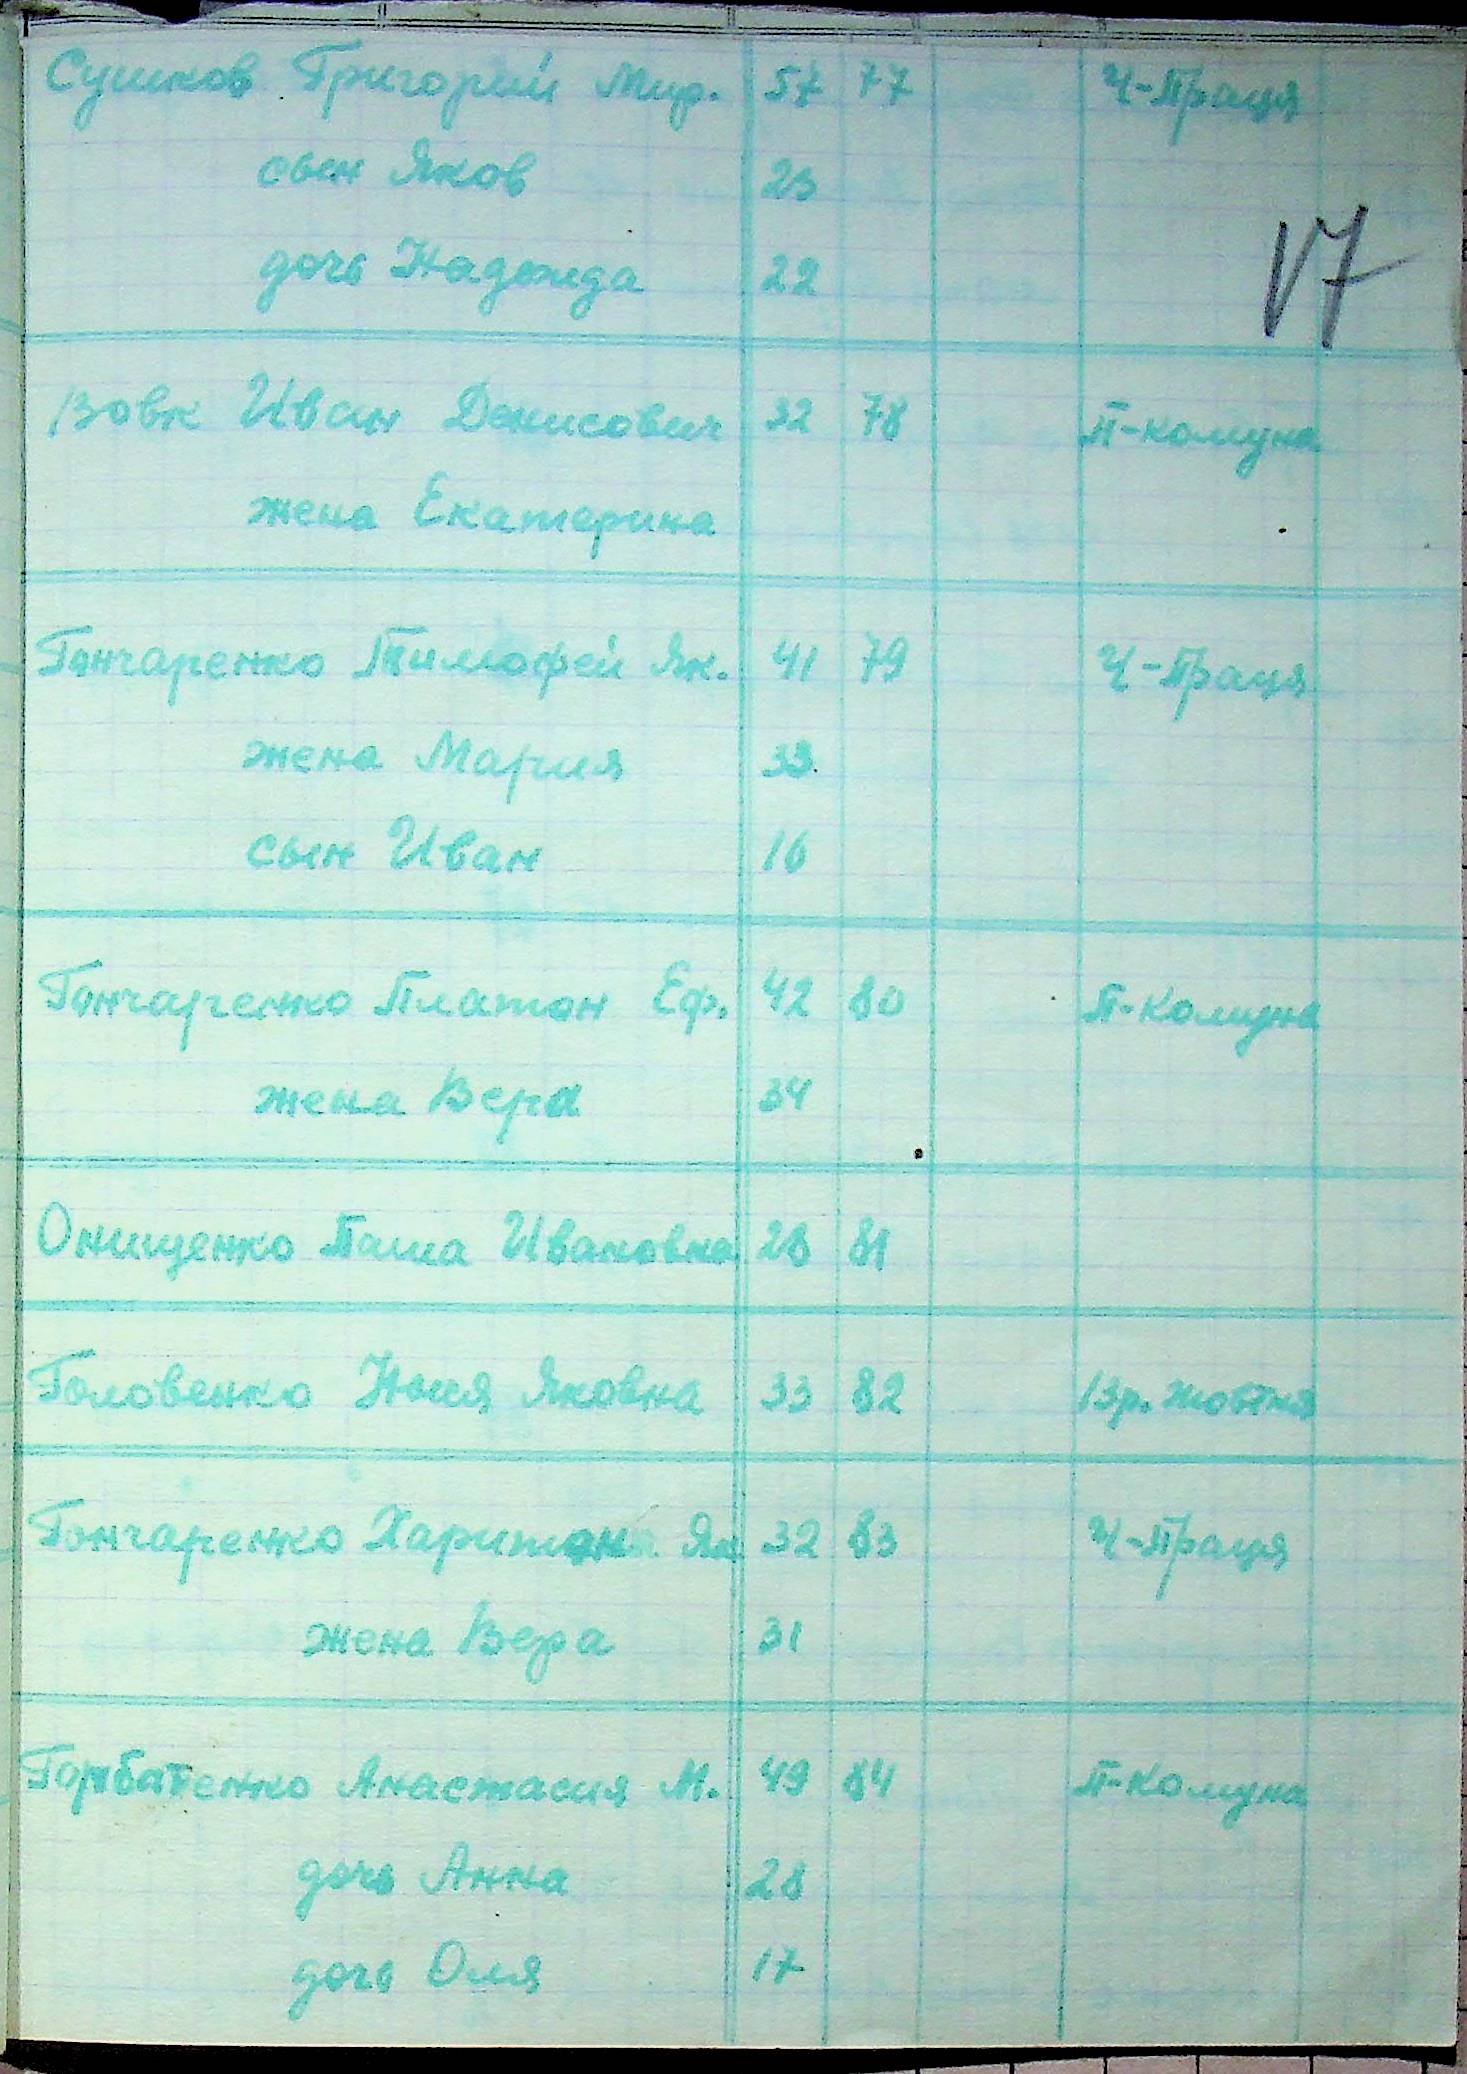 Сушков Григорий Мир. 57 77 Ч-Праця
сын Яков 23
17
дочь Надежда 22
Вовк Иван Денисович 32 78 П-комуна
жена Екатерина
Гончаренко Тимофей Як. 41 79 Ч-Праця
жена Мария 33
сын Иван 16
Гончаренко Платон Еф. 42 80 П-Комуна
жена Вера 34
Онищенко Паша Ивановна 28 81
Головенко Яковна 33 82 13р. Жовтня
Гончаренко Харитон Як 32 83 Ч-Праця
жена Вера 31
Горбатенко Анастасия М. 49 84 П-Комуна
дочь Анна 28
дочь Оля 17